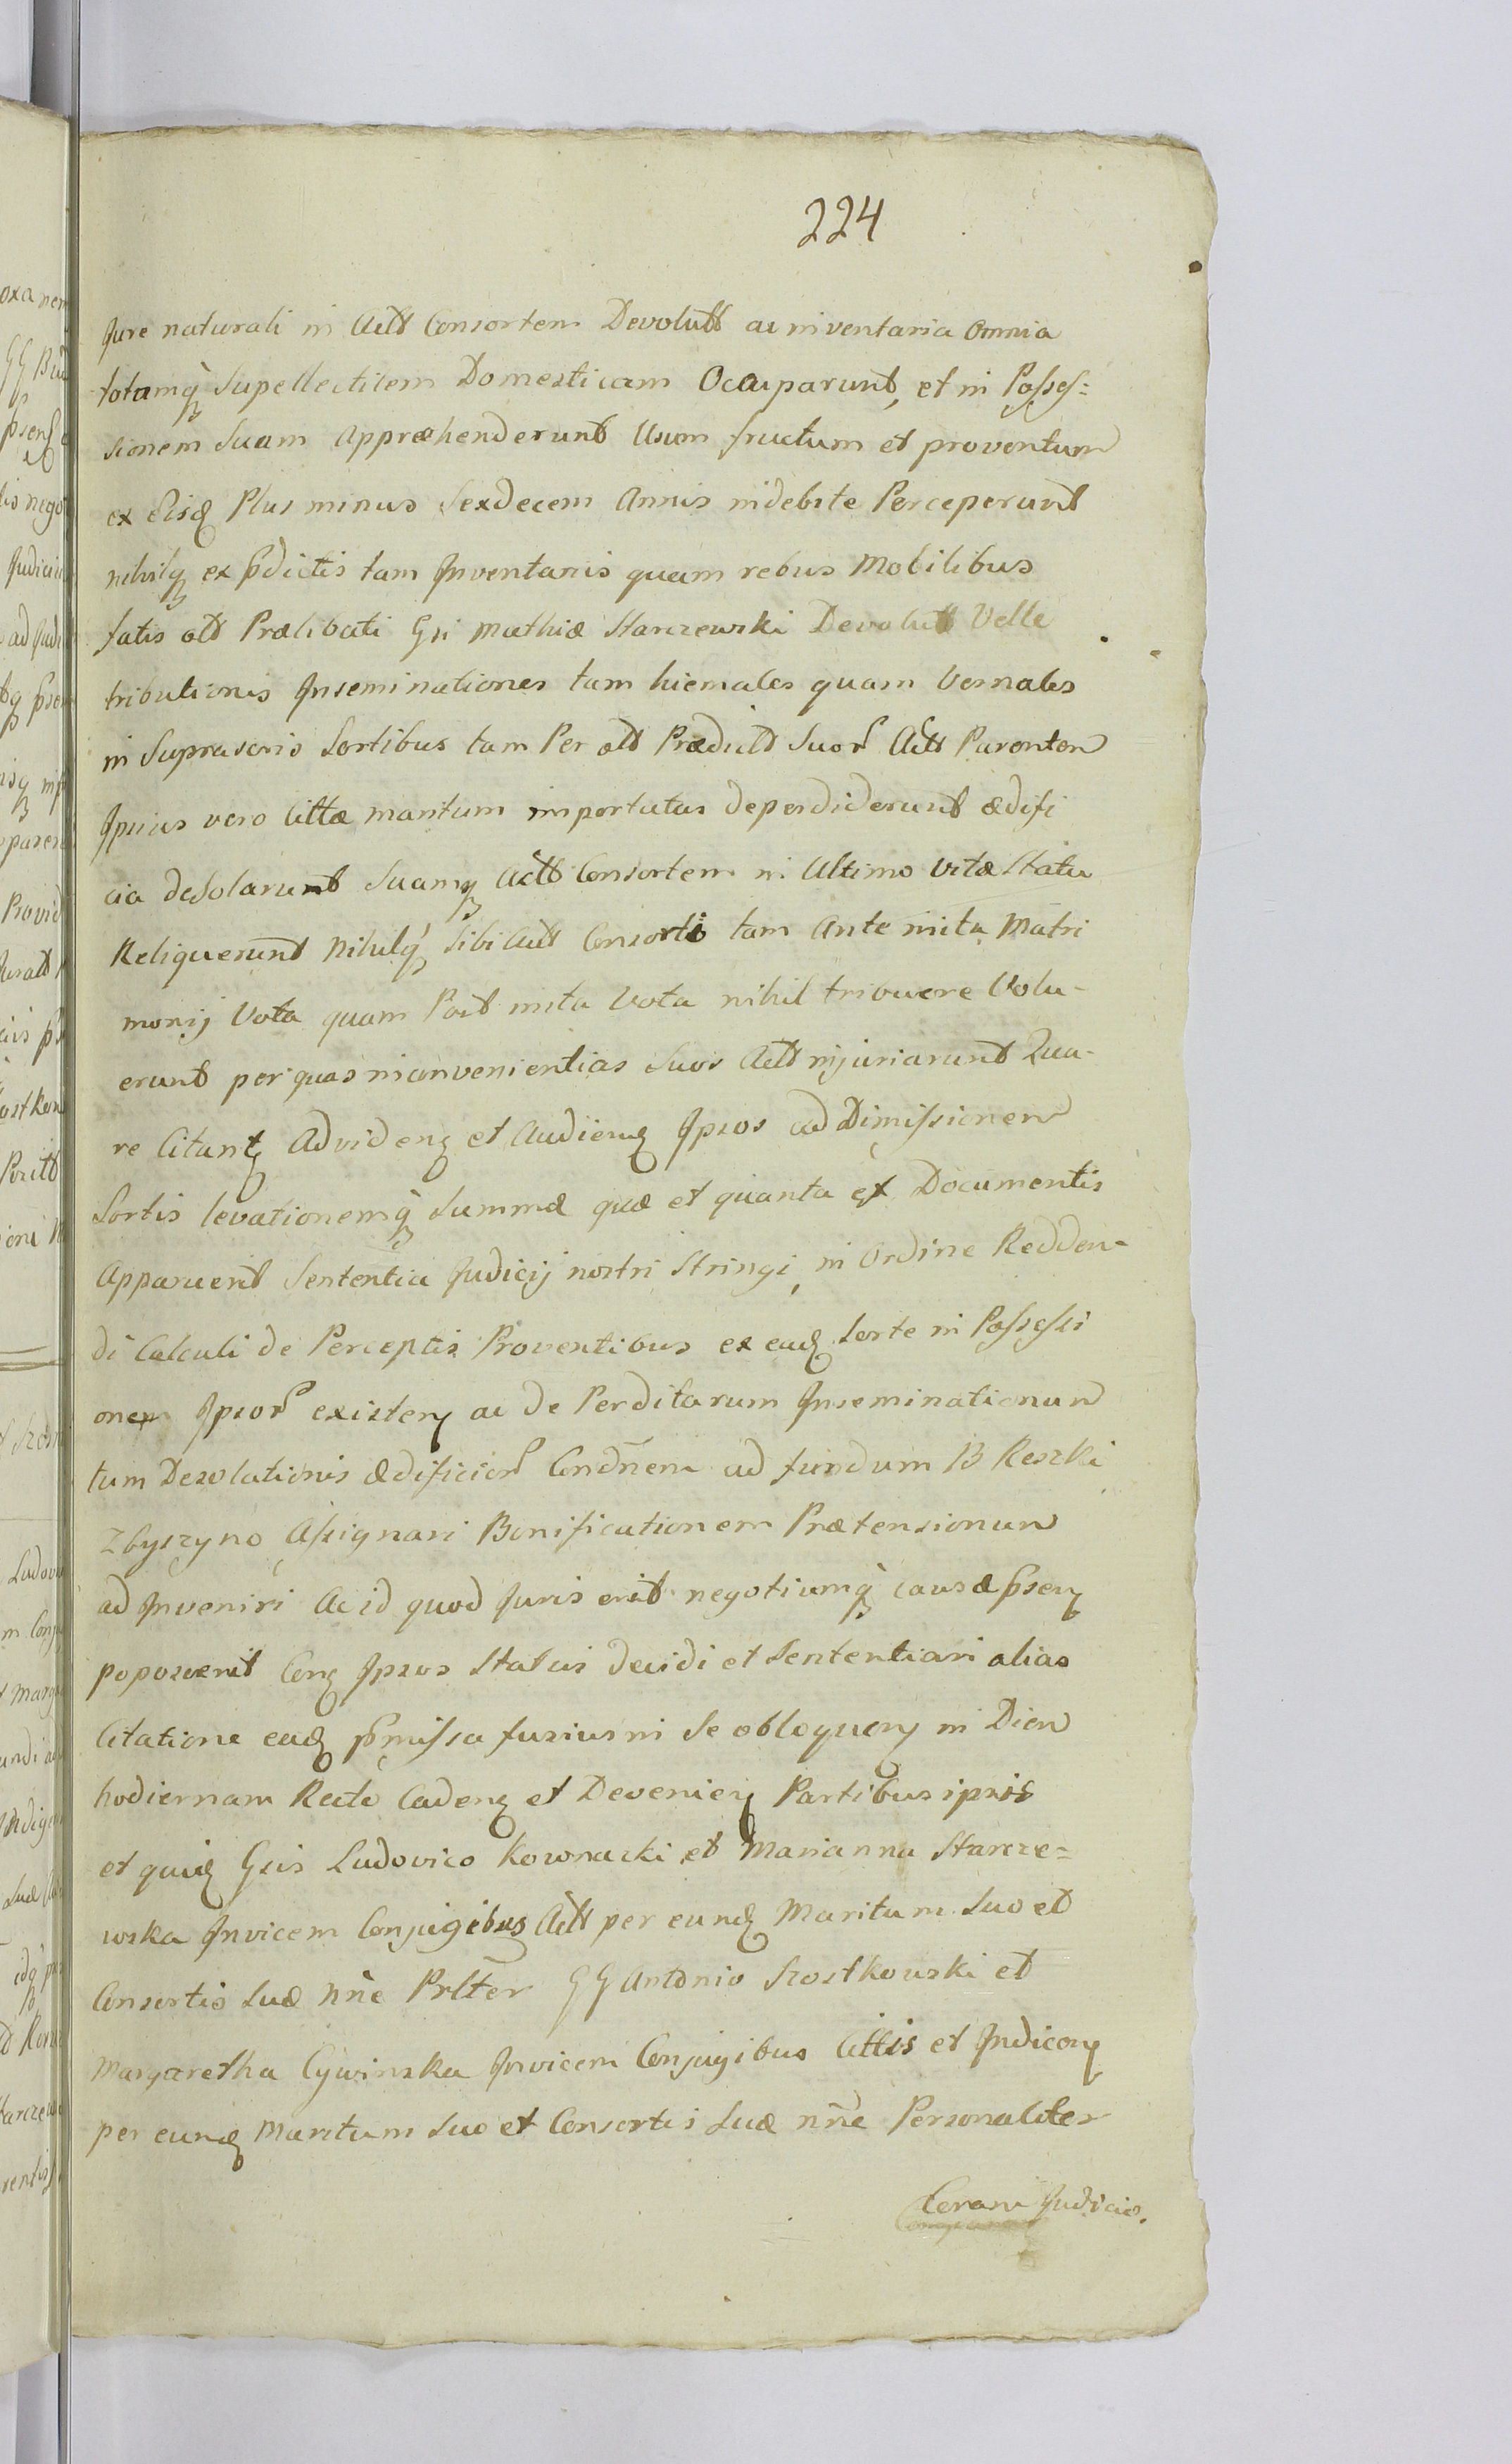 224
Jure naturali in Actt Consortem Devolutt ac inventaria Omnia
totamq̀ Supellectilem Domesticam Ocuparunt, et in Posses=
sionem Suam Appræhenderunt Usum fructum et proventum
ex Eisd Plus minus Sexdecem Annis indebite Perceperunt
nihilq ex pdictis tam Inventariis quam rebus Mobilibus
fatis olt Prælibati Gsi Mathiæ Starczewski Devolutt Velle
tributionis Inseminationes tam hiemales quam Vernales
in Suprascris Sortibus tam Per olt Prædictt Suor Actt Parentem
Ipsius vero Cittæ maritum importatas deperdiderunt ædifi
cia desolarunt Suamq Actt Consortem in Ultimo Vitæ Statu
Reliquerunt Nihilq̀ Sibi Actt Consorti tam Ante inita Matri
monij Vota quam Post inita Vota nihil tribuere Volu-
erunt per quas inconvenientias Suos Actt injuriarunt Qua-
re Citant Advidenq et Audienq Ipsos ad Dimissionem
Sortis levationemq̀ Summæ quæ et quanta ex Documentis
Apparuerit Sententia Judicij nostri Stringi, in Ordine Redden-
di Calculi de Perceptis Proventibus ex ead Sorte in Possessi
onem Ipsor existen ac de Perditarum Inseminationum
tum Desolationis ædificior Condnem ad fundum B Reszki
Zbyszyno Assignari Bonificationem Prætensionum
ad Inveniri Ac id quod Juris erit negotiumq̀ causæ psen
poposcerit Conq Ipsos Statui decidi et Sententiari alias
Citatione ead pmissa fusius in Se obloquen in Diem
hodiernam Recte Caden et Devenien Partibus ipsis
et quid Gsis Ludovico Kownacki et Marianna Starcze=
wska Invicem Conjugibus Actt per eund Maritum Suo et
Consortis Suæ nne Prlter GG Antonio Szostkowski et
Margaretha Cywinska Invicem Conjugibus Cittis et Indicon
per eund Maritum Suo et Consortis Suæ nne Personaliter
Coram Judicio.